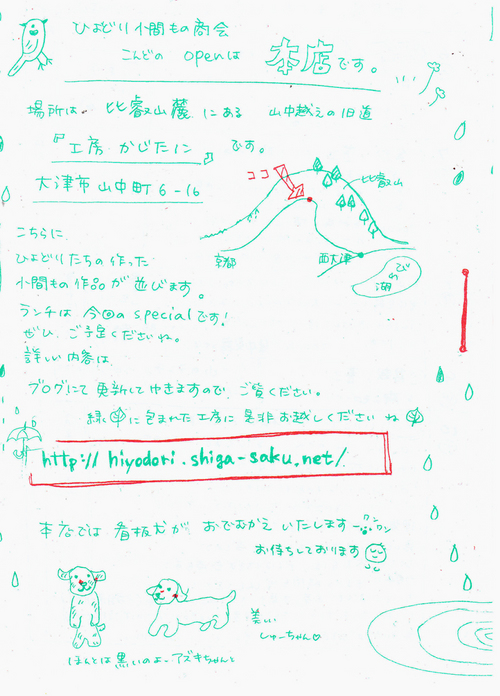 ひよどり小間もの商会
こんどの openは 本店です。
場所は 比叡山麓 にある 山中越えの旧道
『工房 かじたIN』です。
大津市 山中町 6-16
ココ
比叡山
京都
西大津
びわ湖
こちらに
ひよどりたちの作った
小間もの作品が並びます。
ランチは 今回の specialです!
ぜひ、ご予定くださいね。
詳しい内容は
ブログにて 更新してゆきますので、ご覧ください。
緑に包まれた工房に 是非お越しくださいね
http://hiyodori.shiga-saku.net/
本店では 看板犬が おでむかえ いたします
ワンワン
お待ちしております
美しい
しゅーちゃん♡
ほんとは黒いのよー アズキちゃんと